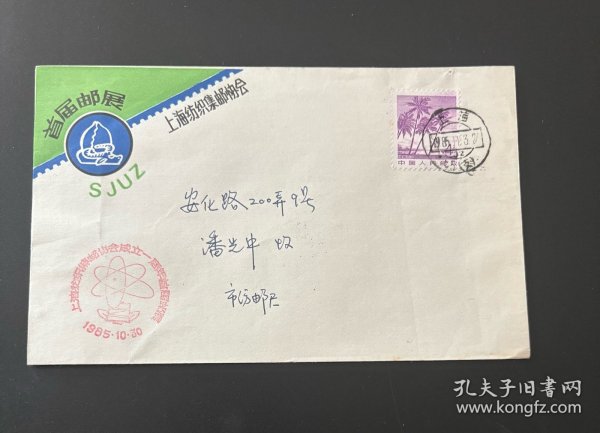 首届邮展
SJUZ
上海纺织集邮协会
中国人民邮政
上海
安化路200弄9号
潘光中 收
上海纺织集邮协会成立一周年
1985·10·30
孔夫子旧书网
www.kongfz.com